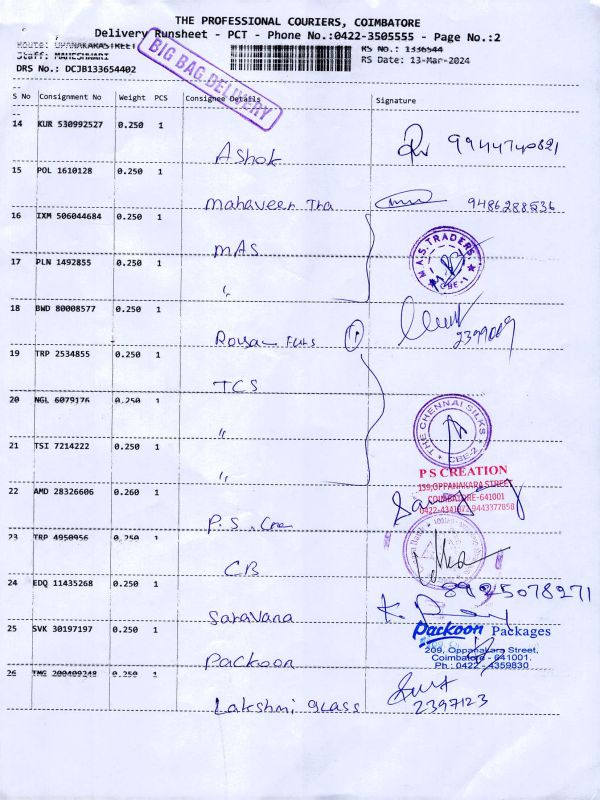 THE PROFESSIONAL COURIERS, COIMBATORE
Delivery Runsheet - PCT - Phone No.:0422-3505555 - Page No.:2
Route: OPANAKARASTREET
RS No.: 1336544
Staff: MAHESHWARI
RS Date: 13-Mar-2024
DRS No.: DCJB133654402
BIG BAG DELIVERY
S No Consignment No Weight PCS Consignee Details Signature
14 KUR 530992527 0.250 1
Ashok 9944740821
15 POL 1610128 0.250 1
Mahaveer Tra 9486288536
16 IXM 506044684 0.250 1
MAS
M.A.S. TRADERS
CBE-1
17 PLN 1492855 0.250 1
"
18 BWD 80008577 0.250 1
2399009
19 TRP 2534855 0.250 1
TCS
20 NGL 6079176 0.250 1
"
THE CHENNAI SILKS
CBE-2
21 TSI 7214222 0.250 1
"
P S CREATION
139,OPPANAKARA STREET
COIMBATORE-641001
22 AMD 28326606 0.260 1
P.S. Crea
23 TRP 4950956 0.250 1
CB
24 EDQ 11435268 0.250 1
8925078271
Saravana
25 SVK 30197197 0.250 1
Packoon Packages
209, Oppanakara Street,
Coimbatore - 641001.
Ph : 0422 - 4359830
Packoon
26 TMG 200409248 0.250 1
Lakshmi glass 2397123